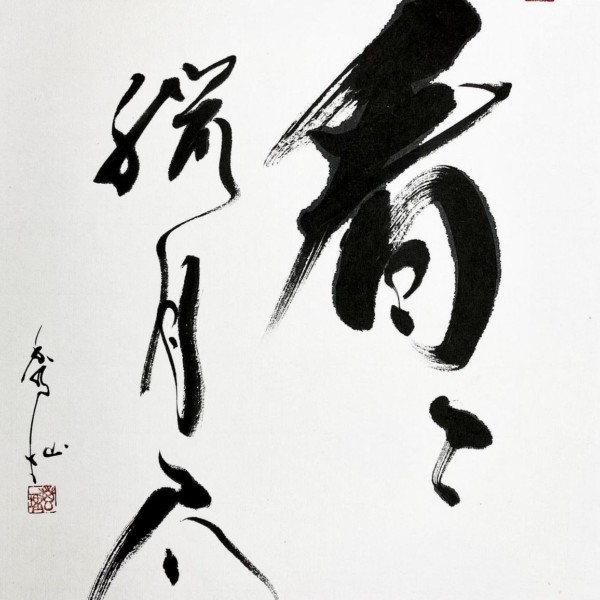 看々
臘月尽